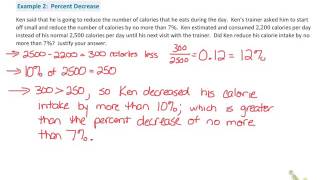 Example 2: Percent Decrease
Ken said that he is going to reduce the number of calories that he eats during the day. Ken's trainer asked him to start
off small and reduce the number of calories by no more than 7%. Ken estimated and consumed 2,200 calories per day
instead of his normal 2,500 calories per day until his next visit with the trainer. Did Ken reduce his calorie intake by no
more than 7%? Justify your answer.
→ 2500-2200 = 300 calories less 300/2500 = 0.12 = 12%
→ 10% of 2500 = 250
→ 300 > 250, so Ken decreased his calorie
intake by more than 10%; which is greater
than the percent decrease of no more
than 7%.